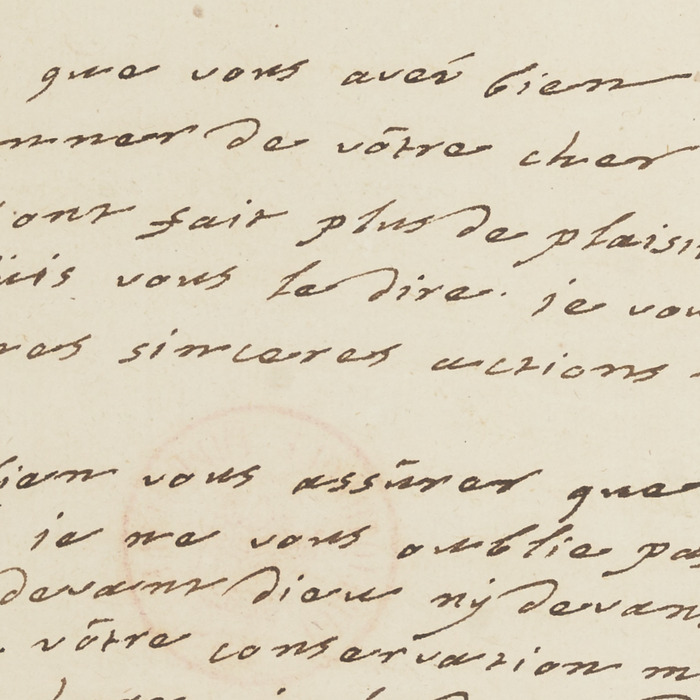 que vous avez bien
nner de vōtre cher
ont fait plus de plaisi
uis vous le dire. je vou
res sinceres actions
ien vous assūrer que
je ne vous oublie pas
devant dieu ny devan
vōtre conservation m